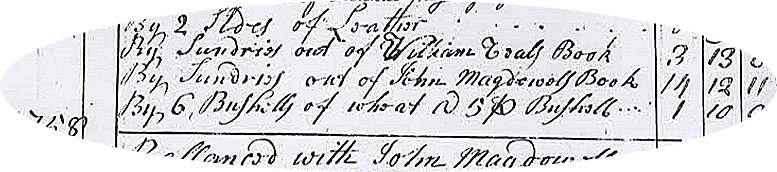 By 2 Sides of Leather
By Sundries out of William Teals Book 3 13
By Sundries out of John Magdowells Book 14 12 11
By 6, Bushells of wheat @ 5/ p Bushell 1 10
1758
Ballanced with John Magdowell